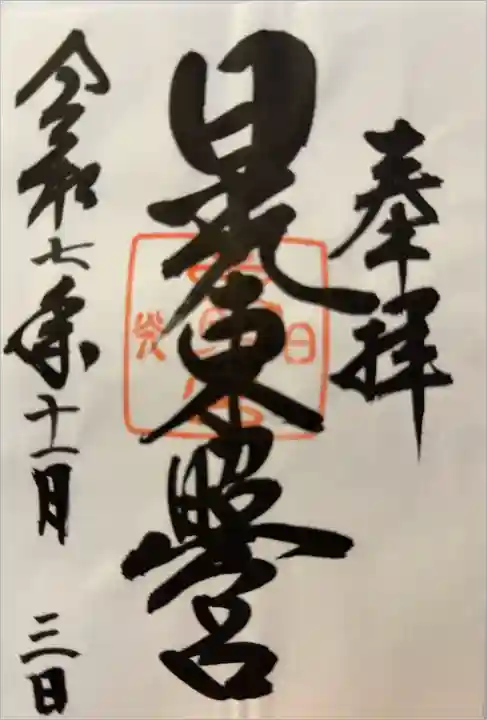 奉拝
日光東照宮
令和七年十一月 三日